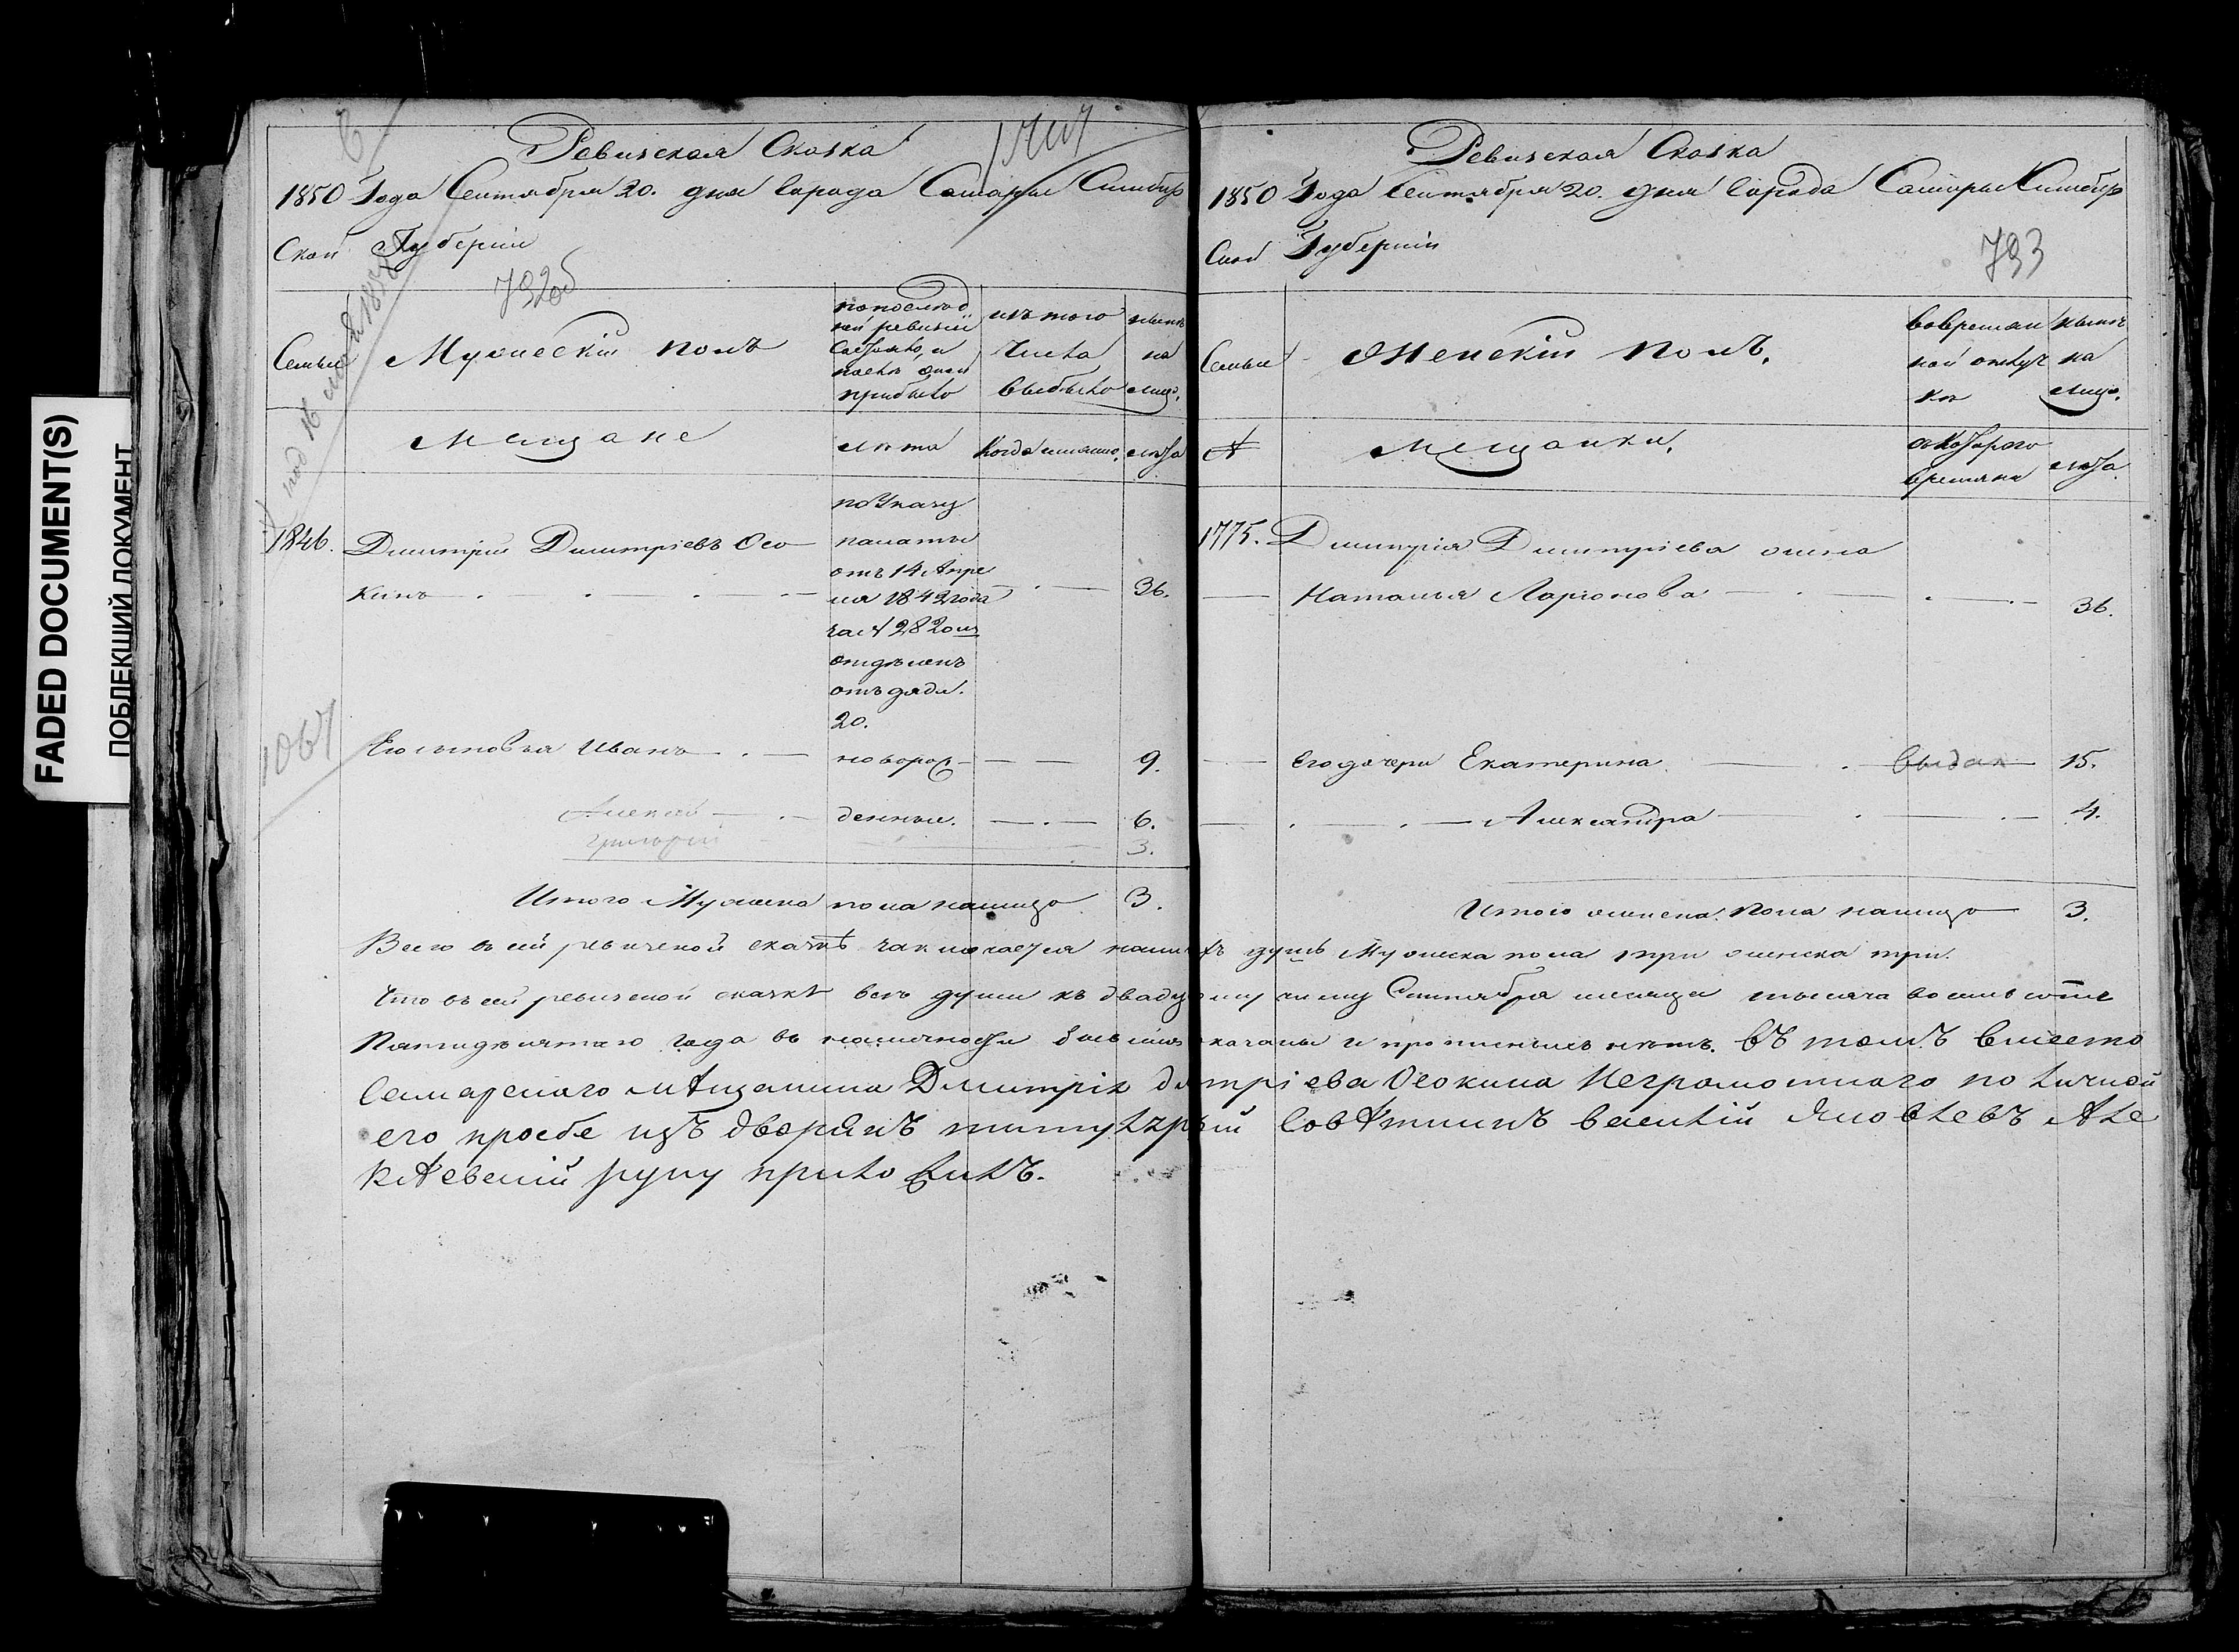 FADED DOCUMENT(S)
ПОБЛЕКШИЙ ДОКУМЕНТ
Ревизская Сказка
1850 Года Сентября 20. дня Города Самары Симбир
Ской Губернии
792об
Семьи
Мужеский полъ
по последней ревизии состояло, и после оной прибыло
изъ того числа выбыло
ныне на лицо.
Мещане
лѣта
когда имянно.
лѣта
1846. Димитрий Димитріевъ Осо
кинъ
по Указу
палаты
отъ 14 Апре
ля 1842 года
за № 2820 мъ
отдѣленъ
отъ дяди.
20.
36.
Его сыновья Иванъ
новорож
9.
Алексей
денные.
6.
Григорий
3.
1067
Итого Мужеска пола налицо 3.
Ревизская Сказка
1850 Года Сентября 20. дня Города Самары Симбир
Ской Губернии
793
Семьи
Женский полъ.
во времян
ной отлуч
ке
ныне
на
лицо.
№
Мещанки.
с которого
времяни
лѣта.
1775. Димитрия Димитріева жена
Наталья Ларіонова 36.
Его дочери Екатерина 15.
Александра 4.
Итого женска пола налицо 3.
Всего въ сей ревизской сказкѣ заключается наличныхъ душъ Мужеска пола три женска три.
Что въ сей ревизской сказкѣ всѣ души къ двадцатому числу Сентября месяца тысяча восемь сотъ
Пятидѣсятаго года въ наличности бывшія показаны и прописныхъ нѣтъ. въ томъ вместо
Самарскаго мѣщанина Димитрія Дмитріева Осокина Неграмотнаго по личной
его прозбе изъ дворянъ титулярный Совѣтникъ Василий Яковлевъ Але
ксѣевский руку приложилъ.